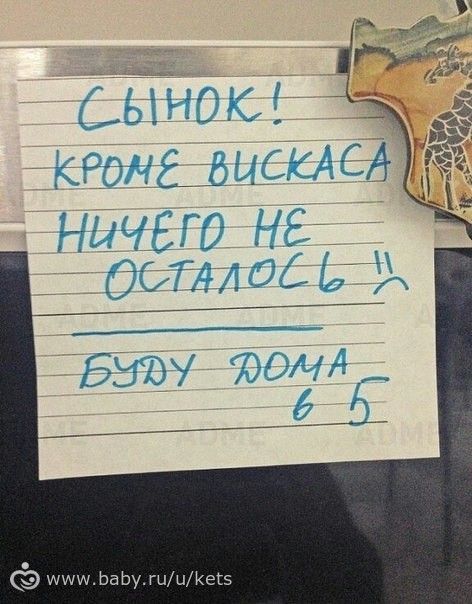 СЫНОК!
КРОМЕ ВИСКАСА
НИЧЕГО НЕ
ОСТАЛОСЬ :(
БУДУ ДОМА
в 5
ADME
ADME
ADME
www.baby.ru/u/kets